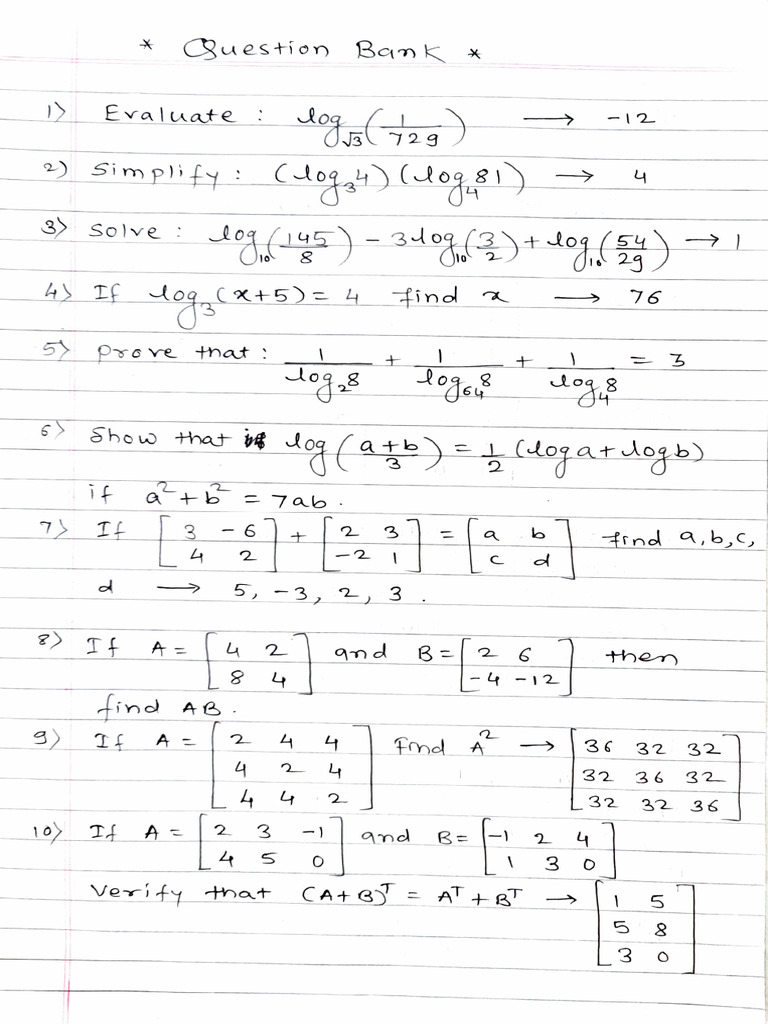 * Question Bank *
1) Evaluate : log_√3 (1/729) → -12
2) Simplify : (log_3 4) (log_4 81) → 4
3) Solve : log_10 (145/8) - 3 log_10 (3/2) + log_10 (54/29) → 1
4) If log_3 (x+5) = 4 find x → 76
5) prove that : 1/log_2 8 + 1/log_64 8 + 1/log_4 8 = 3
6) Show that log ((a+b)/3) = 1/2 (log a + log b)
if a² + b² = 7ab.
7) If [3 -6; 4 2] + [2 3; -2 1] = [a b; c d] find a, b, c,
d → 5, -3, 2, 3.
8) If A = [4 2; 8 4] and B = [2 6; -4 -12] then
find AB.
9) If A = [2 4 4; 4 2 4; 4 4 2] Find A² → [36 32 32; 32 36 32; 32 32 36]
10) If A = [2 3 -1; 4 5 0] and B = [-1 2 4; 1 3 0]
Verify that (A+B)^T = A^T + B^T → [1 5; 5 8; 3 0]